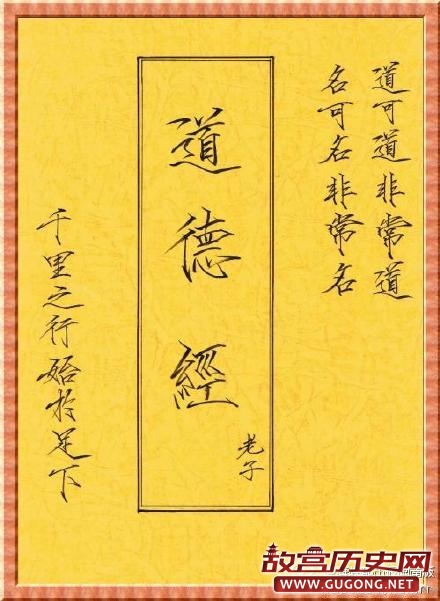 道可道非常道
名可名非常名
道德經
老子
千里之行始於足下
故宫历史网
WWW.GUGONG.NET